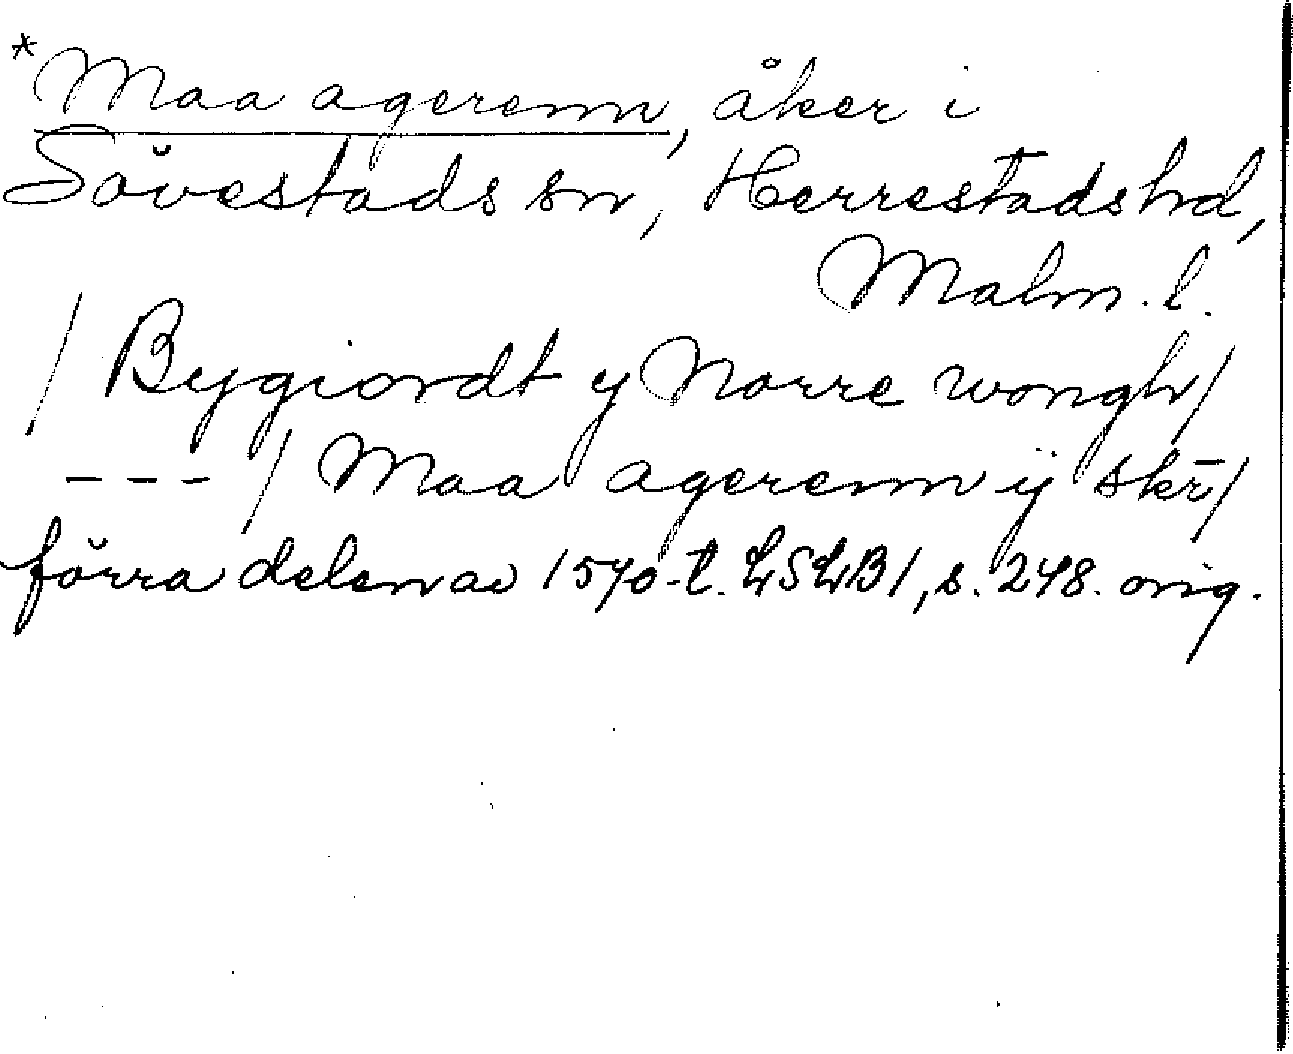 *Maa agerenn, åker i
Sövestads sn, Herrestads hd,
Malm. l.
/ Bygiordt y Norre wongh /
--- / Maa agerenn ij skr̄ /
förra delen av 1570-t. LSLB 1, s. 248. orig.